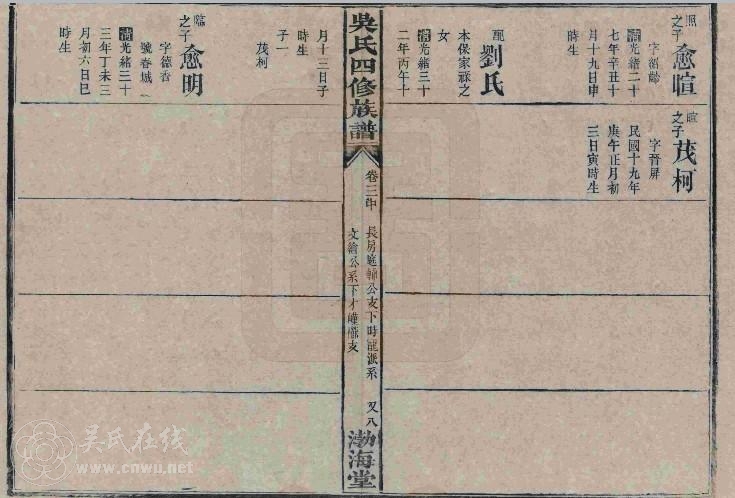 照之子
愈暄
字紹齡
清光緒二十
七年辛丑十
月十九日申
時生
配
劉氏
本保家祿之
女
清光緒三十
二年丙午十
暄之子
茂柯
字晉屏
民國十九年
庚午正月初
三日寅時生
吳氏四修族譜
卷三中
長房庭 公支下時 派系
文繪公系下才 支
又八
渤海堂
月十三日子
時生
子一
茂柯
之子
愈明
字德香
號春城
清光緒三十
三年丁未三
月初六日巳
時生
吴氏在线
www.cnwu.net